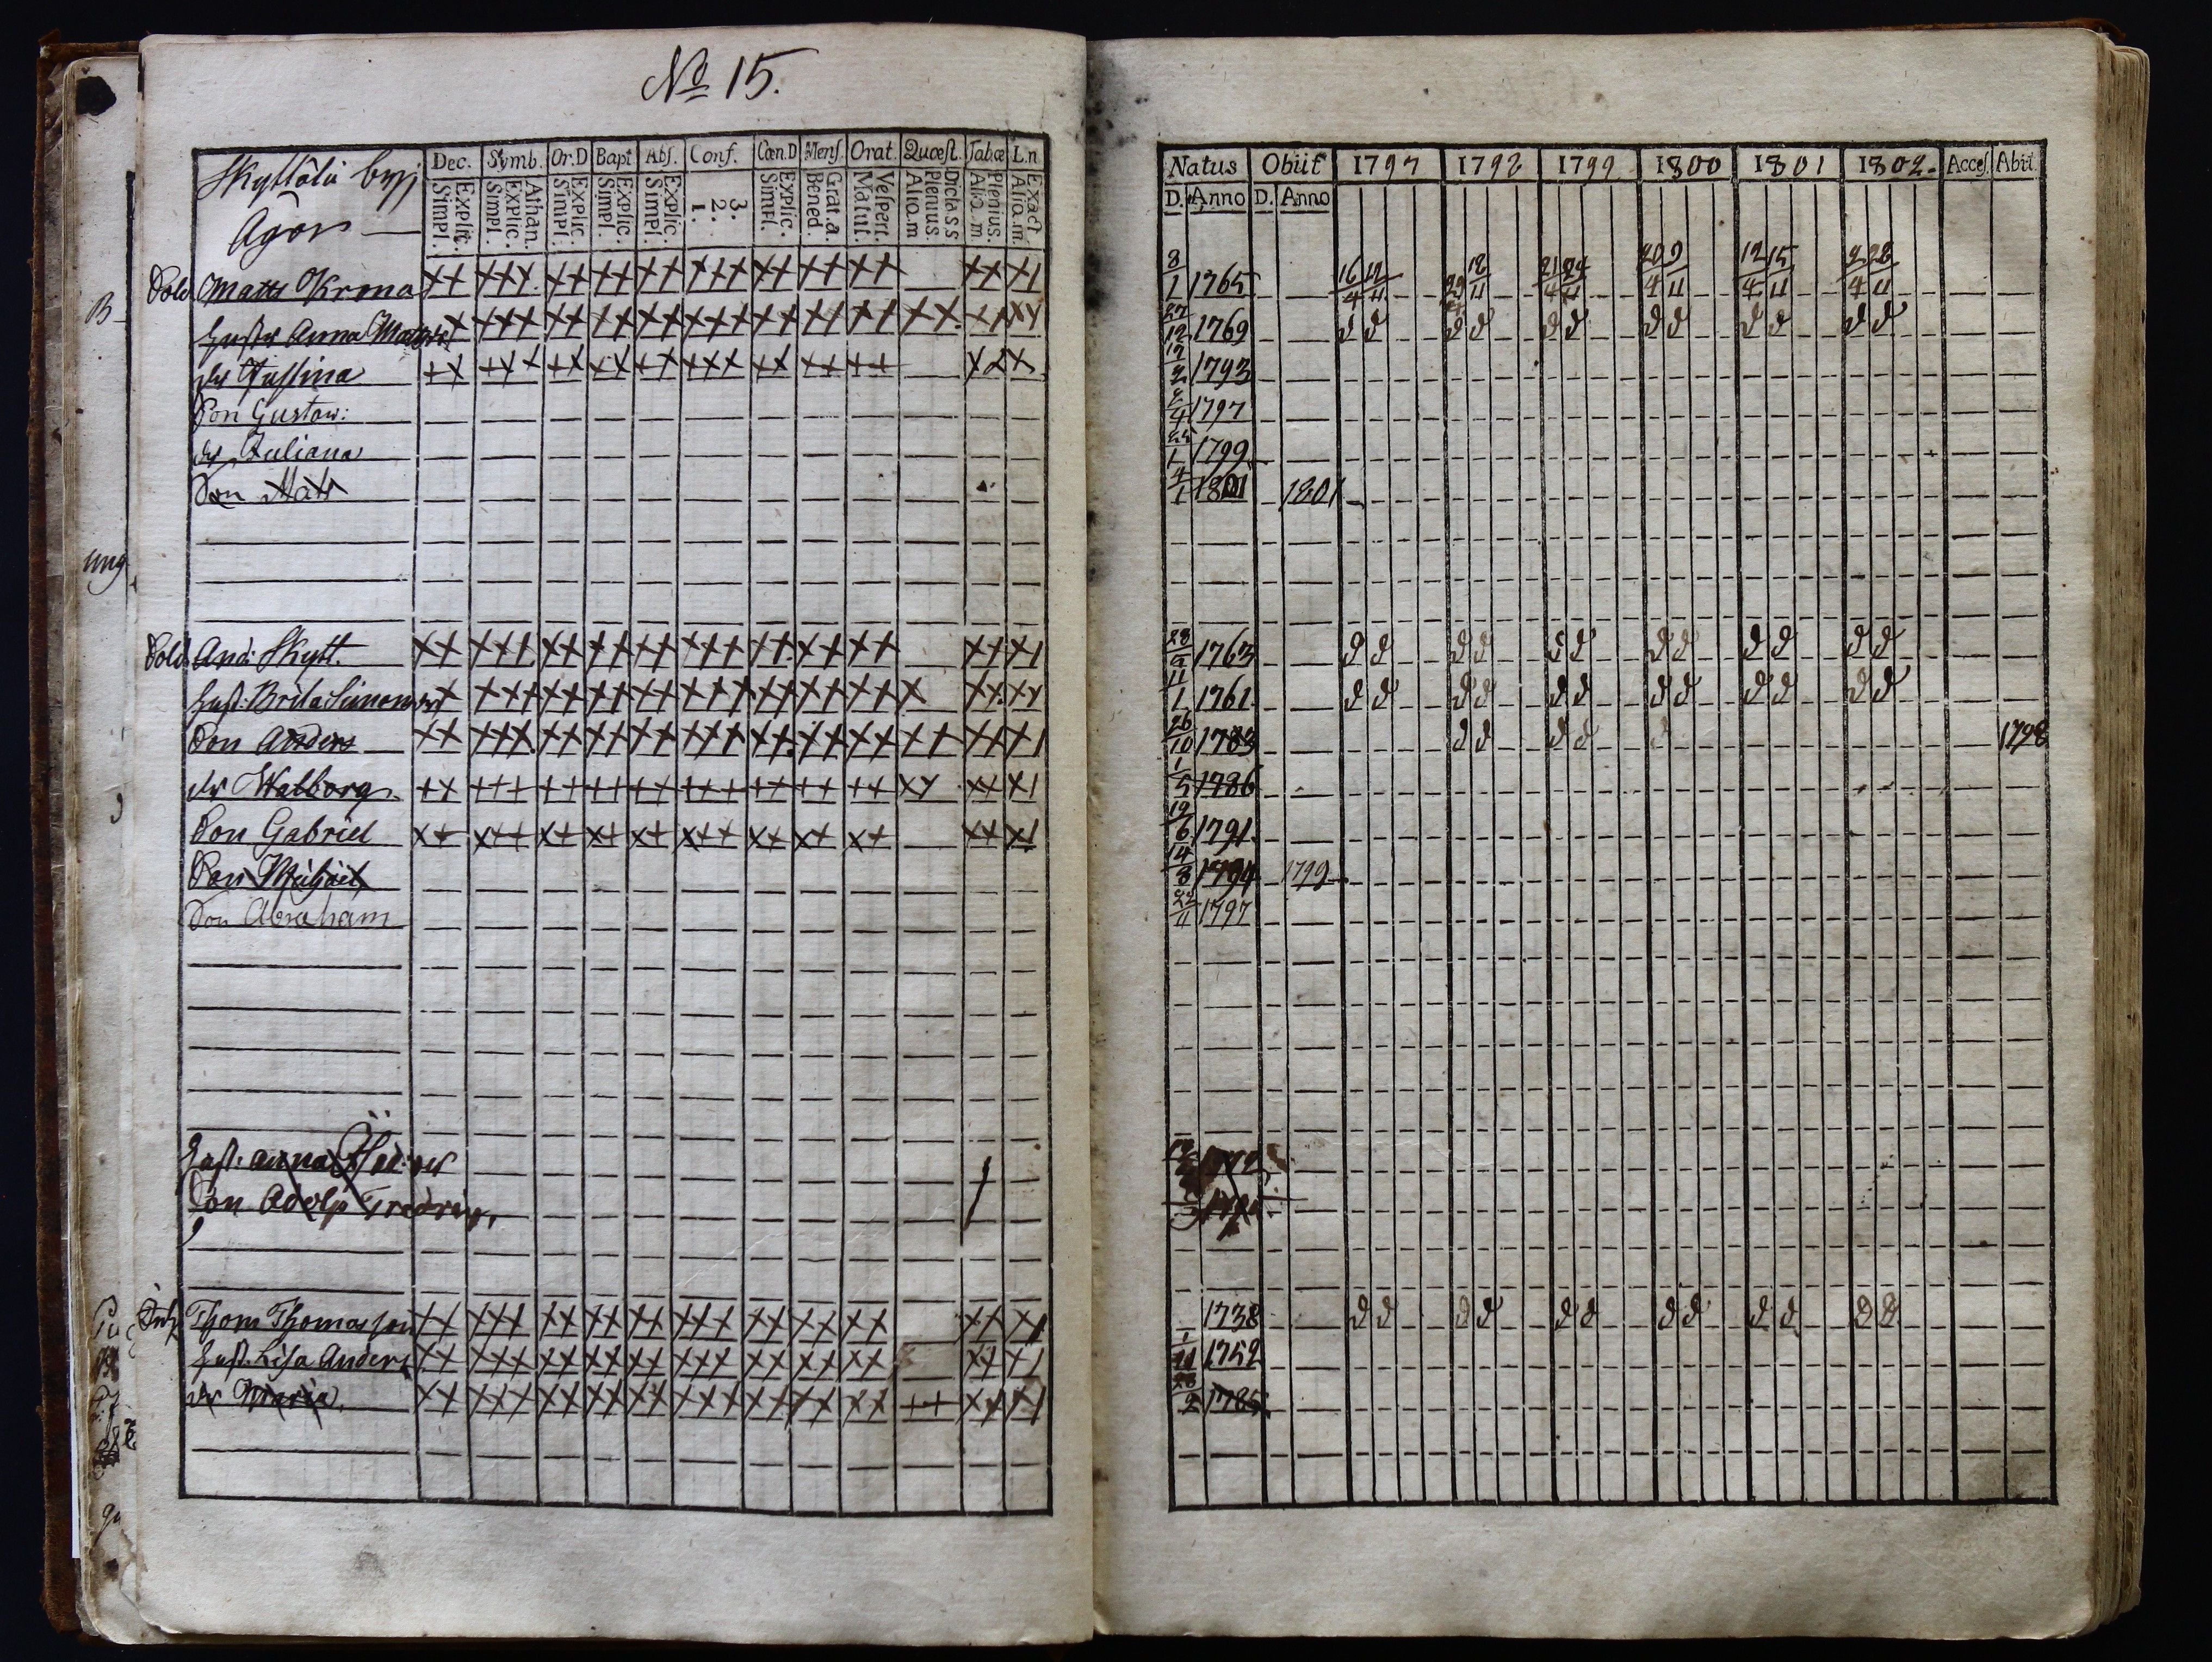 No 15.
Skyttälä byj
Ägor
Dec. Symb. Or.D Bapt Abſ. Conf. Cœn.D Menſ. Orat. Quæſt. Tab.œ L.n
Explic. Simpl. Athan. Explic. Simpl. Explic. Simpl. Explic. Simpl. Explic. Simpl. 3. 2. 1. Explic. Simpl. Grat.a. Bened. Veſpert. Matut. Dicta.s.s Plenius. Aliq.m Plenius. Aliq.m. Exact Aliq.m.
Natus Obiit 1797 1798 1799 1800 1801 1802. Acceſ. Abit
D. Anno D. Anno
Sold Matts Krona 8/1 1765 16/4 12/11 18/11 21/4 24/11 20/4 9/11 12/4 15/11 2/4 28/11
hustr Anna Matts 27/12 1769 d d d d d d d d d d d d
dr Justina 17/2 1793
Son Gustav: 2/4 1797
dr Juliana 1/1799
Son Matt 4/1 1801 1801
Sold And: Skytt. 28/9 1763 d d d d d d d d d d d d
hust: Brita Simons dr 11/1 1761 d d d d d d d d d d d d
Son Anders 26/10 1783 d d d d d 1798
dr Walborg 1/5 1786
Son Gabriel 19/6 1791
Son Michael 14/3 1794 1799
Son Abraham 22/11 1797
hust: Anna dr
Son Adolph Fredric
Inh. Thom Thomasson 1738 d d d d d d d d d d d d
hust. Lisa Anders 1/11 1752
dr Maria. 28/2 1785